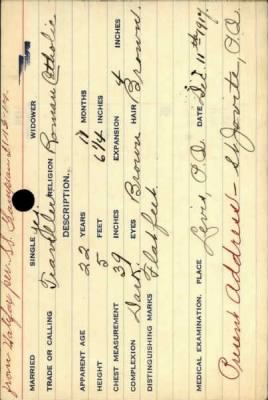 from Halifax per S.S. Grampian 21.12.17
MARRIED SINGLE yes. WIDOWER
TRADE OR CALLING Traveller RELIGION Roman Catholic
DESCRIPTION.
APPARENT AGE 22 YEARS 11 MONTHS
HEIGHT 5 FEET 6¼ INCHES
CHEST MEASUREMENT 39 INCHES EXPANSION 4 INCHES
COMPLEXION Dark. EYES Brown HAIR Brown.
DISTINGUISHING MARKS Flat feet.
MEDICAL EXAMINATION. PLACE Levis, P.Q. DATE 11th 1917.
Present Address - St. Jovite, P.Q.